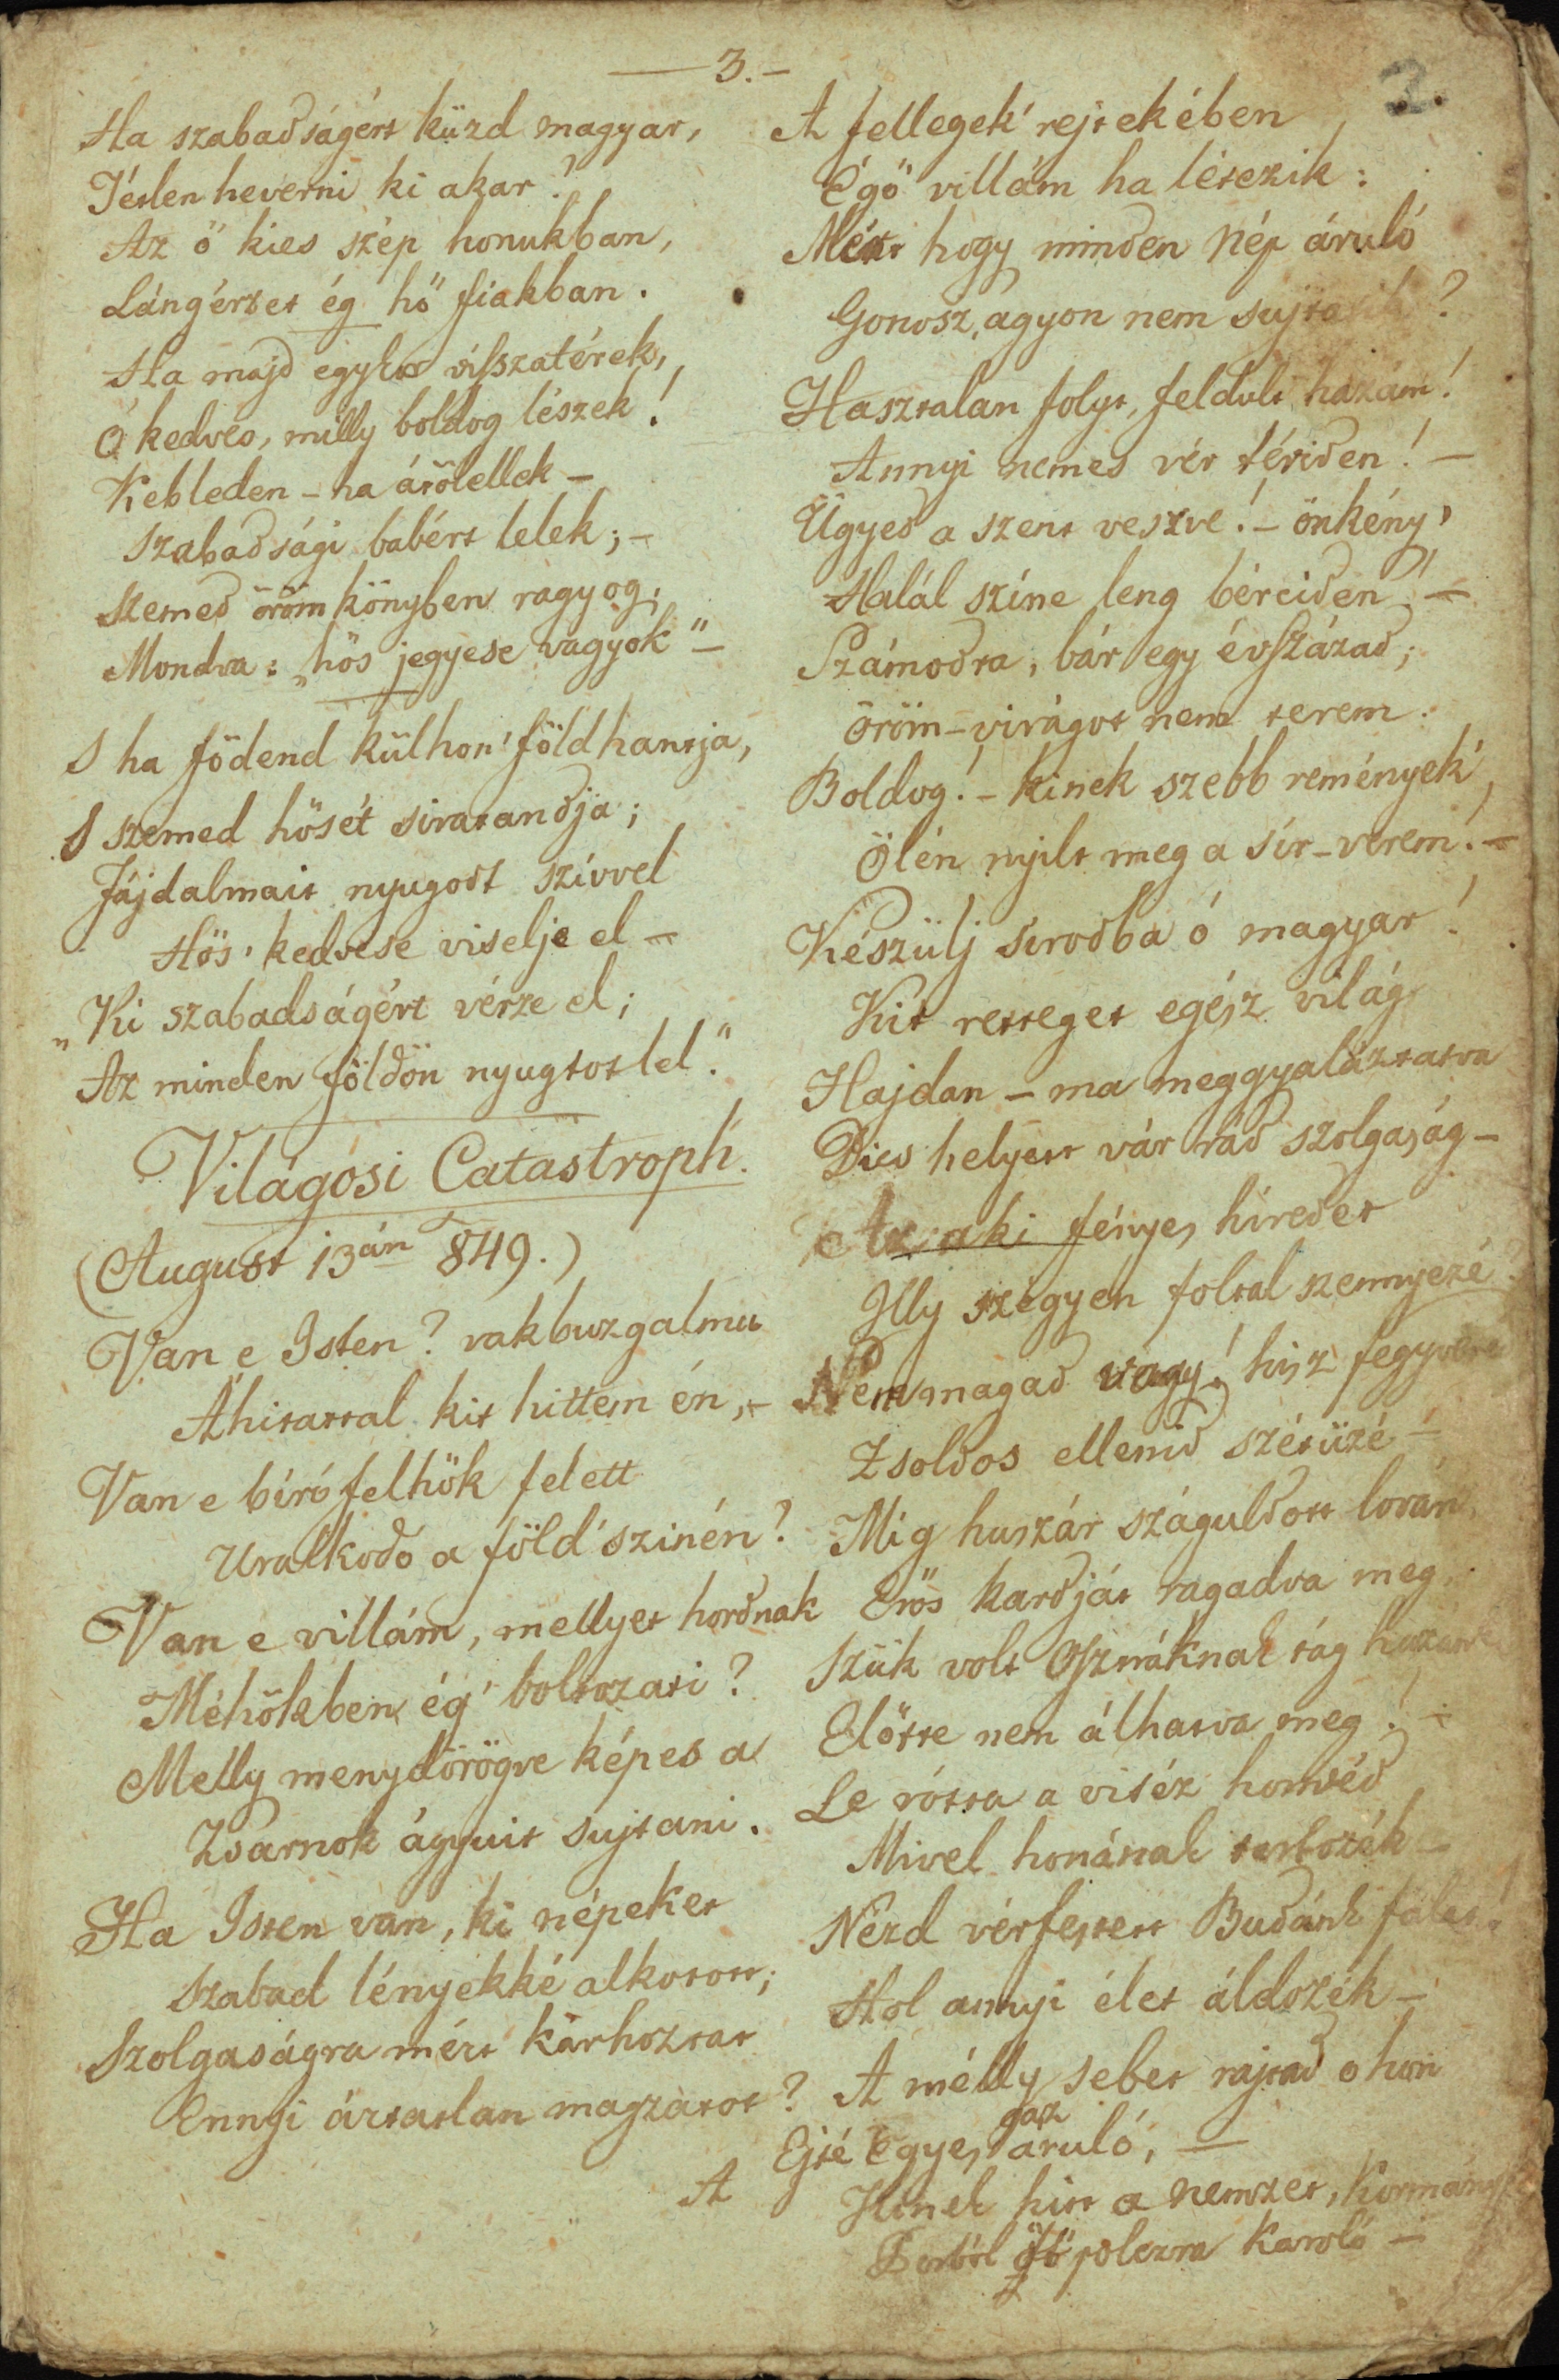 3.
2.
Ha szabadságért küzd magyar,
Tétlen heverni ki akar?
Az ő kies szép honukban,
Lángérzet ég hő fiakban.
Ha majd egykor visszatérek,
Ó kedves, milly boldog lészek!
Kebleden – ha átölellek –
Szabadsági babért lelek; –
Szemed öröm könyben ragyog;
Mondva: „hős jegyese vagyok" –
S ha födend külhon' földhantja,
S szemed hősét siratandja;
Fájdalmait nyugodt szívvel
Hős' kedvese viselje el –
„Ki szabadságért vérze el;
Az minden földön nyugtot lel."
Világosi Catastroph.
(August 13án 849.)
Van e Isten? vakbuzgalmu
Áhitattal kit hittem én, –
Van e bíró felhők felett
Uralkodó a föld' szinén?
Van e villám, mellyet hordnak
Méhökben ég' boltozati?
Melly menydörögve képes a
Zsarnok ágyuit sujtani.
Ha Isten van, ki népeket
Szabad lényekké alkotott;
Szolgaságra mért kárhoztat
Ennyi ártatlan magzatot?
A
A fellegek' rejtekében
Égő villám ha létezik:
Mért hogy minden nép áruló
Gonosz, agyon nem
Hasztalan folyt, feldult hazám!
Annyi nemes vér téridén! –
Ügyed a szent veszve! – önkény'
Halál színe leng bérciden! –
Számodra, bár egy évszázad;
Öröm-virágot nem terem.
Boldog! – kinek szebb remények'
Ölén nyilt meg a sír-verem! –
Készülj sirodba ó magyar!
Kit retteget egész világ
Hajdan – ma meggyaláztatva
Dics helyett vár rád szolgaság –
Az, aki fényes híredet
Illy szégyen foltal szennyezé
Nem magad vagy! hisz fegyvered
Zsoldos ellenid szétüzé –
Míg huszár száguldott lován
Erős kardját ragadva meg,
Szük volt Osztráknak tág
Előtte nem álhatva meg! –
Le rótta a vitéz honvéd
Mivel honának tartozék –
Nézd vérfestett Budánk falát!
Hol annyi élet áldozék –
A mélly sebet rajtad o hon
Ejté egyes gaz áruló, –
Kinek hitt a nemzet,
polczra karoló –